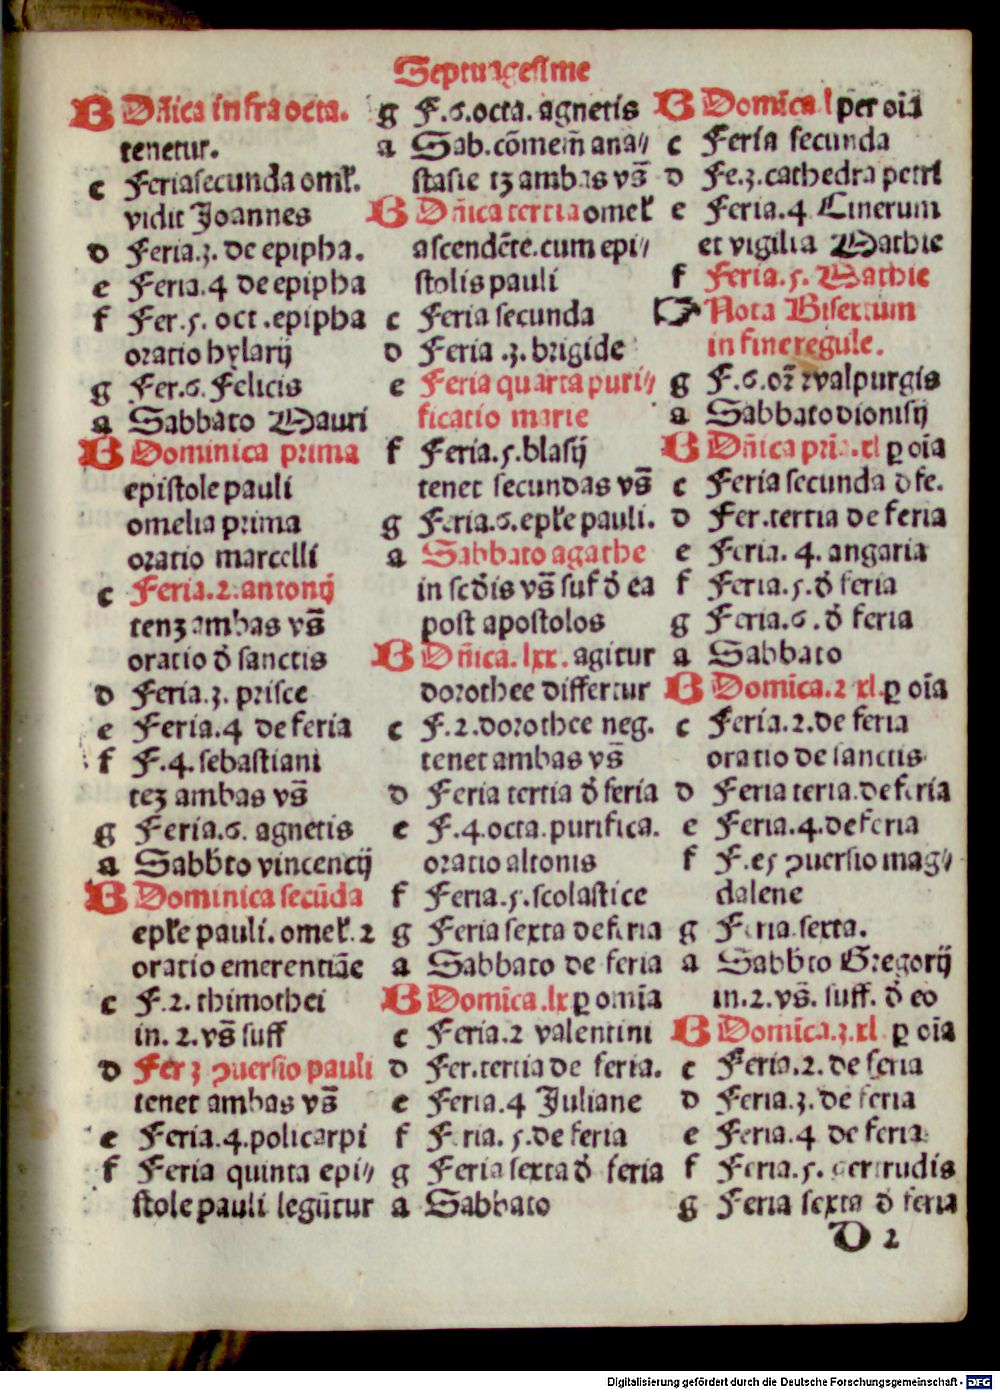 Septuagesime
B Dñica infra octa.
tenetur.
c Feria secunda omeł.
vidit Joannes
d Feria.3. de epipha.
e Feria.4 de epipha
f Fer.5. oct.epipha
oratio hylarij
g Fer.6. Felicis
a Sabbato Mauri
B Dominica prima
epistole pauli
omelia prima
oratio marcelli
c Feria.2.antonij
tenʒ ambas vs̄
oratio đ sanctis
d Feria.3. prisce
e Feria.4 de feria
f F.4.sebastiani
teʒ ambas vs̄
g Feria.6. agnetis
a Sabb̄to vincencij
B Dominica secūda
epłe pauli. omeł.2
oratio emerentiāe
c F.2. thimothei
in. 2. vs̄ suff
d Fer 3 ꝯuersio pauli
tenet ambas vs̄
e Feria.4.policarpi
f Feria quinta epi//
stole pauli legūtur
g F.6.octa. agnetis
a Sab.cōmem̄ ana//
stasie tʒ ambas vs̄
B Dñica tertia omeł
ascendēte.cum epi//
stolis pauli
c Feria secunda
d Feria .3. brigide
e Feria quarta puri//
ficatio marie
f Feria.5.blasij
tenet secundas vs̄
g Feria.6.epłe pauli.
a Sabbato agathe
in scđis vs̄ suf đ ea
post apostolos
B Dñica. lxx. agitur
dorothee differtur
c F.2.dorothee neg.
tenet ambas vs̄
d Feria tertia đ feria
e F.4.octa.purifica.
oratio altonis
f Feria.5.scolastice
g Feria sexta de feria
a Sabbato de feria
B Domīca.lx ꝑ omīa
c Feria.2 valentini
d Fer.tertia de feria.
e Feria.4 Juliane
f Feria. 5.de feria
g Feria sexta đ feria
a Sabbato
B Domīca l per oīa
c Feria secunda
d Fe.3.cathedra petri
e Feria.4 Cinerum
et vigilia Mathie
f Feria.5. Mathie
☞ Nota Bisextum
in fine regule.
g F.6.or̄ walpurgis
a Sabbato dionisij
B Dñica pria.xl ꝑ oīa
c Feria secunda d fe.
d Fer.tertia de feria
e Feria. 4. angaria
f Feria.5.đ feria
g Feria.6.đ feria
a Sabbato
B Domīca.2 xl.ꝑ oīa
c Feria.2.de feria
oratio de sanctis
d Feria teria.de feria
e Feria.4.de feria
f F.e5 ꝯuersio mag//
dalene
g Feria.sexta.
a Sabb̄to Gregorij
in.2.vs̄. suff. đ eo
B Domīca.3.xl ꝑ oīa
c Feria.2. de feria
d Feria.3. de feria
e Feria.4 de feria
f Feria.5. gertrudis
g Feria sexta đ feria
D 2
Digitalisierung gefördert durch die Deutsche Forschungsgemeinschaft - DFG